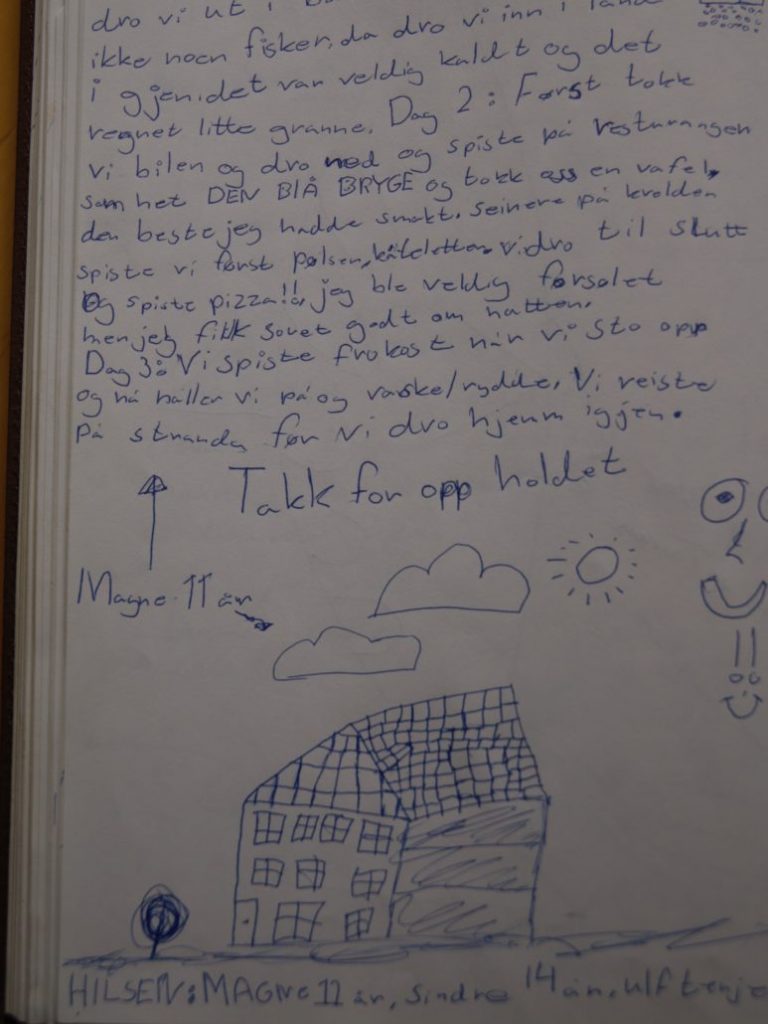 dro vi ut i
ikke noen fisker, da dro vi inn i land
i gjen, det var veldig kaldt og det
regnet litte granne. Dag 2: Først tokk
vi bilen og dro ned og spiste på resturangen
som het DEN BLÅ BRYGE og tokk oss en vafel,
den beste jeg hadde smakt. Seinere på kvelden
spiste vi først pølser, kåteletter. vi dro til slutt
og spiste pizza!!, jeg ble veldig forsølet
men jeg fikk sovet godt om natten.
Dag 3: Vi spiste frokost når vi sto opp
og nå håller vi på og vaske/rydde. Vi reiste
på stranda før vi dro hjem igjen.
Takk for opp holdet
Magne 11 år
HILSEN: MAGNE 11 år, Sindre 14 år, Ulf